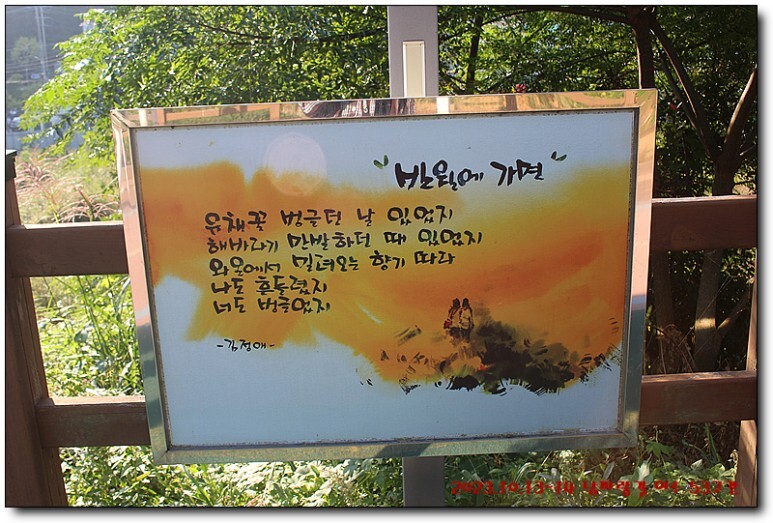 반월에 가면
유채꽃 벙글던 날 있었지
해바라기 만발하던 때 있었지
와온에서 밀려오는 향기 따라
나도 흔들렸지
너도 벙글었지
-김정애-
2023.10.13-14 남파랑길